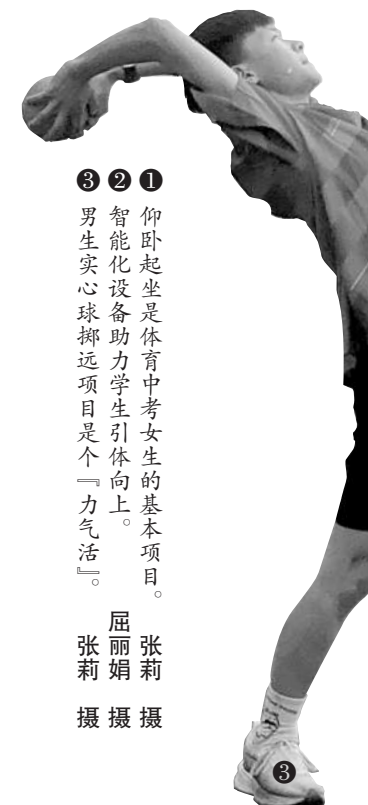 ❶仰卧起坐是体育中考女生的基本项目。 张莉 摄
❷智能化设备助力学生引体向上。 屈丽娟 摄
❸男生实心球掷远项目是个『力气活』。 张莉 摄
❸